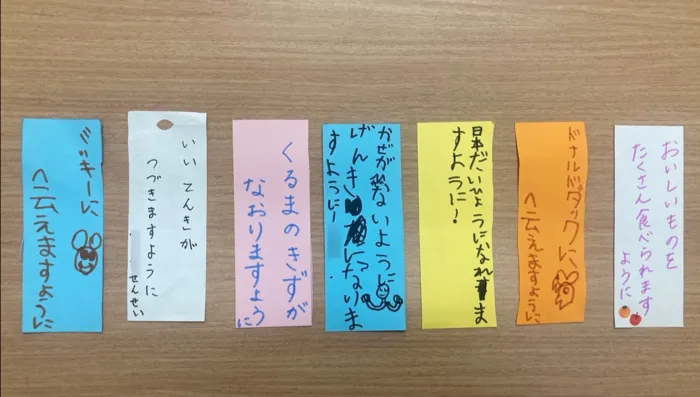 おいしいものを
たくさん食べられます
ように
ドナルドダックに
会えますように
日本だいひょうになれま
すように!
かぜが ないように
げんきになりま
すように!
くるまのきずが
なおりますよう
に
いい てんきが
つづきますように
せんせい
ミッキーに
会えますように